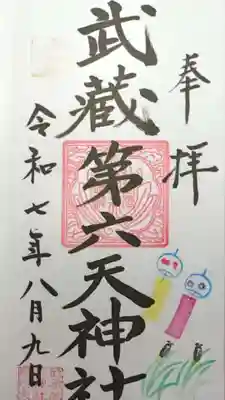 奉拝
武蔵第六天神社
令和七年八月九日